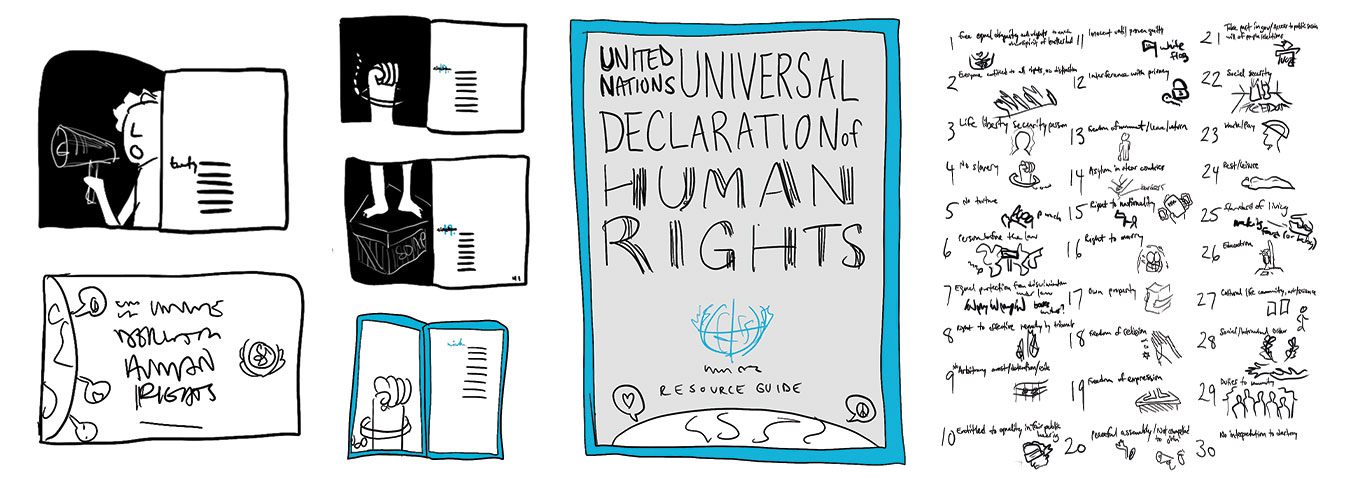 HUMAN
RIGHTS
UNITED
NATIONS
UNIVERSAL
DECLARATION of
HUMAN
RIGHTS
RESOURCE GUIDE
1 Free equal dignity and rights
spirit of brotherhood
2 Everyone entitled to all rights, no distinction
3 Life liberty security person
4 No slavery
5 No torture
punch
6 Person before the law
7 Equal protection from discrimination
under law
8 Right to effective remedy by tribunal
9 No Arbitrary arrest/detention/exile
10 Entitled to equality in fair public
hearing
11 Innocent until proven guilty
white
flag
12 Interference with privacy
13 Freedom of movement/leave/return
14 Asylum in other countries
15 Right to nationality
16 Right to marry
17 Own property
18 Freedom of religion
19 Freedom of expression
20 Peaceful assembly/Not compelled
to join
21 Take part in gov/Access to public service
will of people/elections
VOTE
22 Social security
23 Work/Pay
24 Rest/leisure
25 Standard of living
26 Education
27 Cultural life community, art/science
28 Social/International Order
29 Duties to community
30 No interpretation to destroy